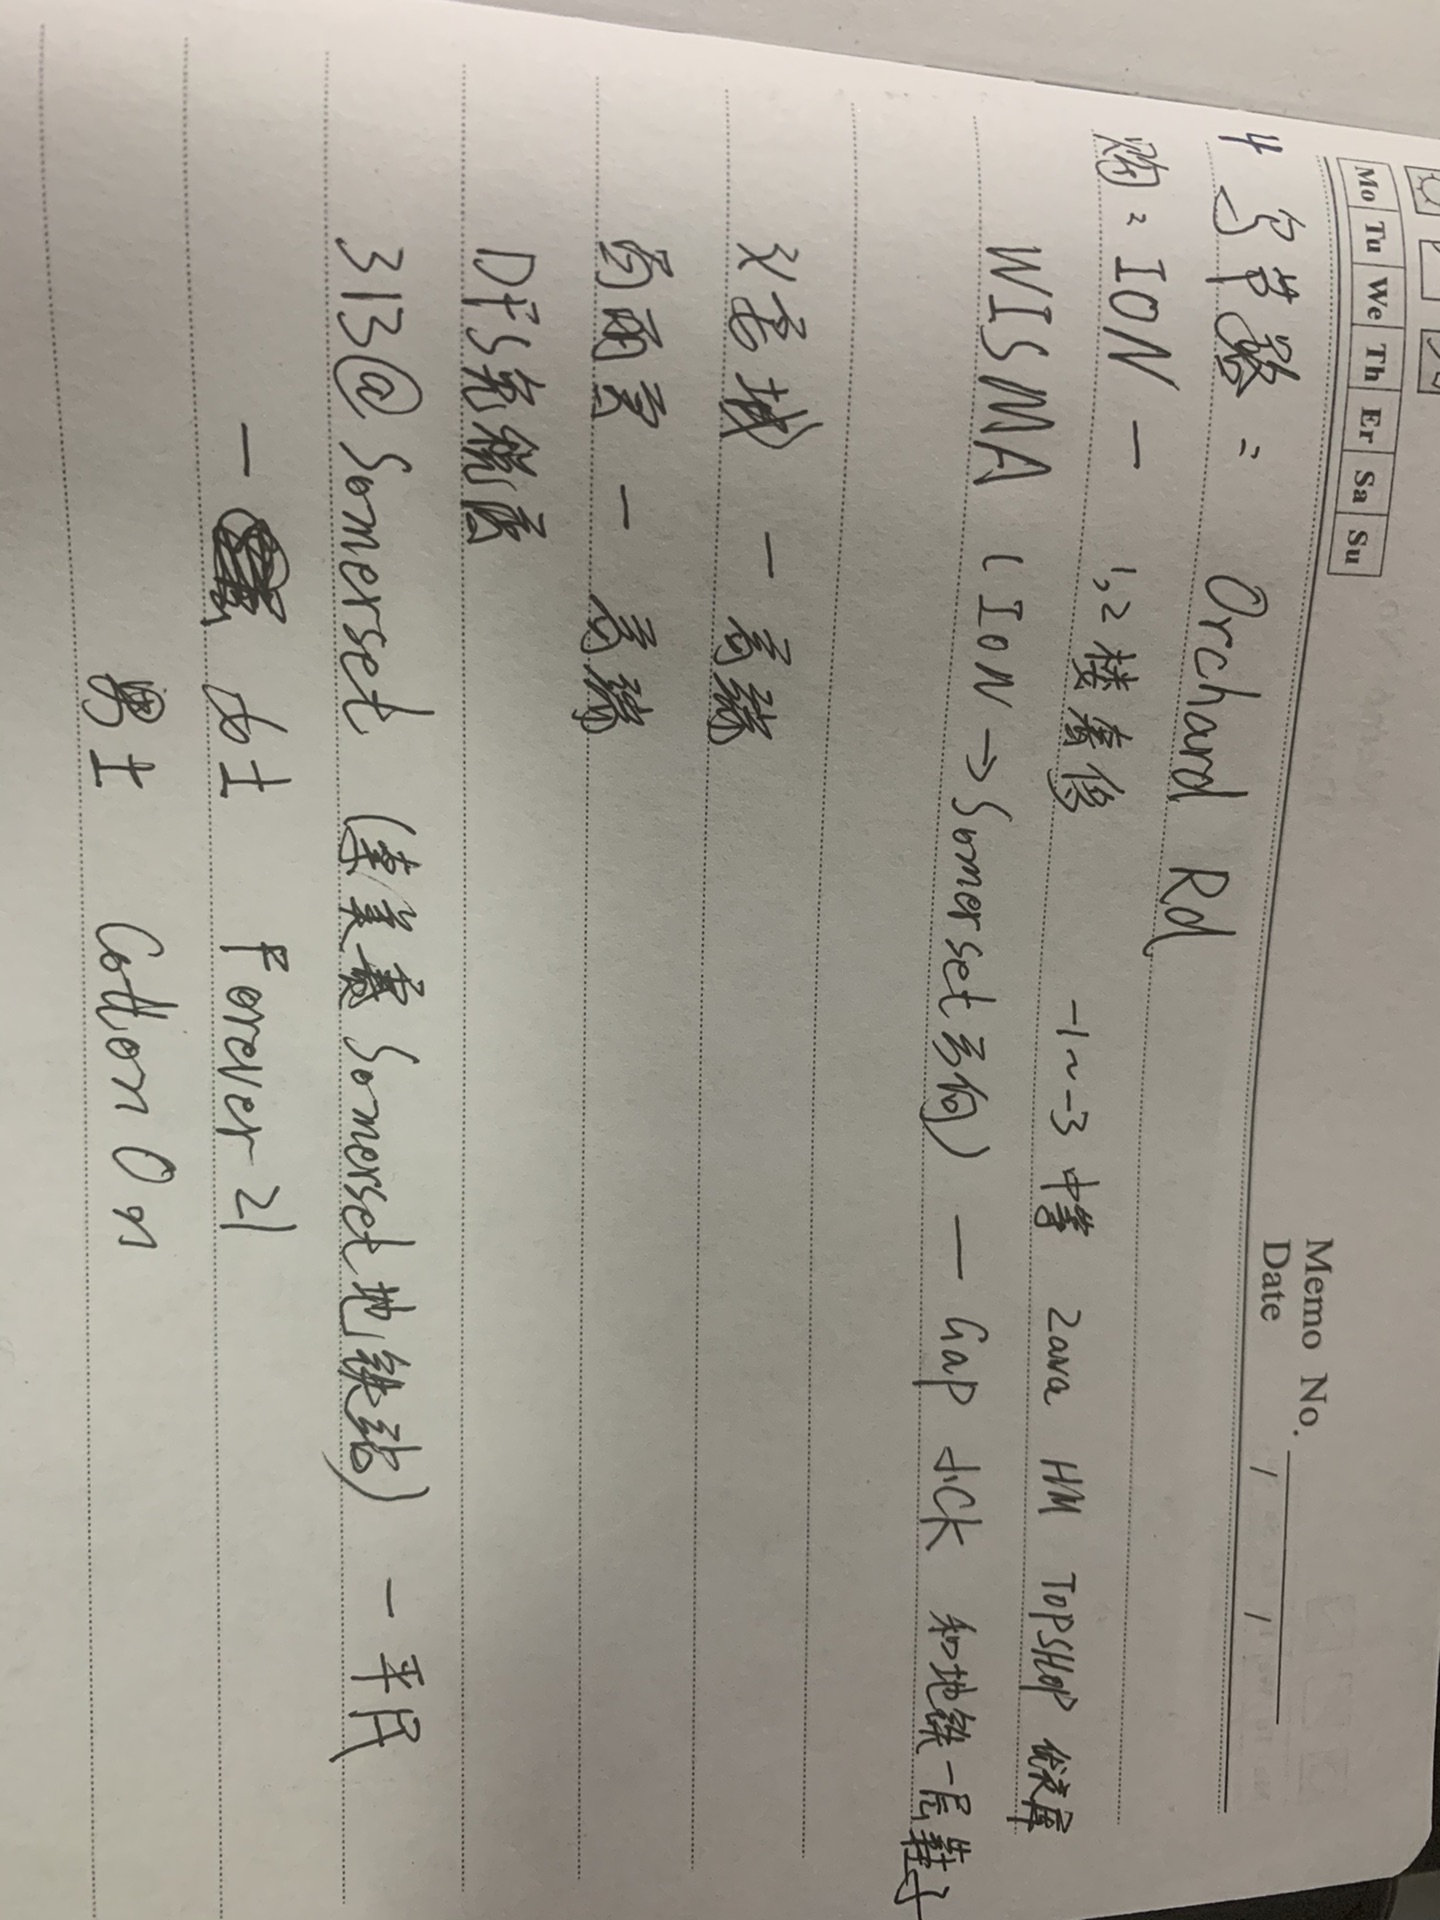 Mo Tu We Th Er Sa Su
Memo No.
Date / /
4 乌节路: Orchard Rd
购: ION — 1,2楼奢侈 -1~-3 中等 Zara HM TOPSHOP 优衣库
WISMA (ION→Somerset方向) — Gap 小CK 和地铁一层鞋子
义安城 — 高端
— 高端
DFS免税店
313@Somerset (連着 Somerset地铁站) — 平民
— 女士 Forever 21
男士 Cotton On